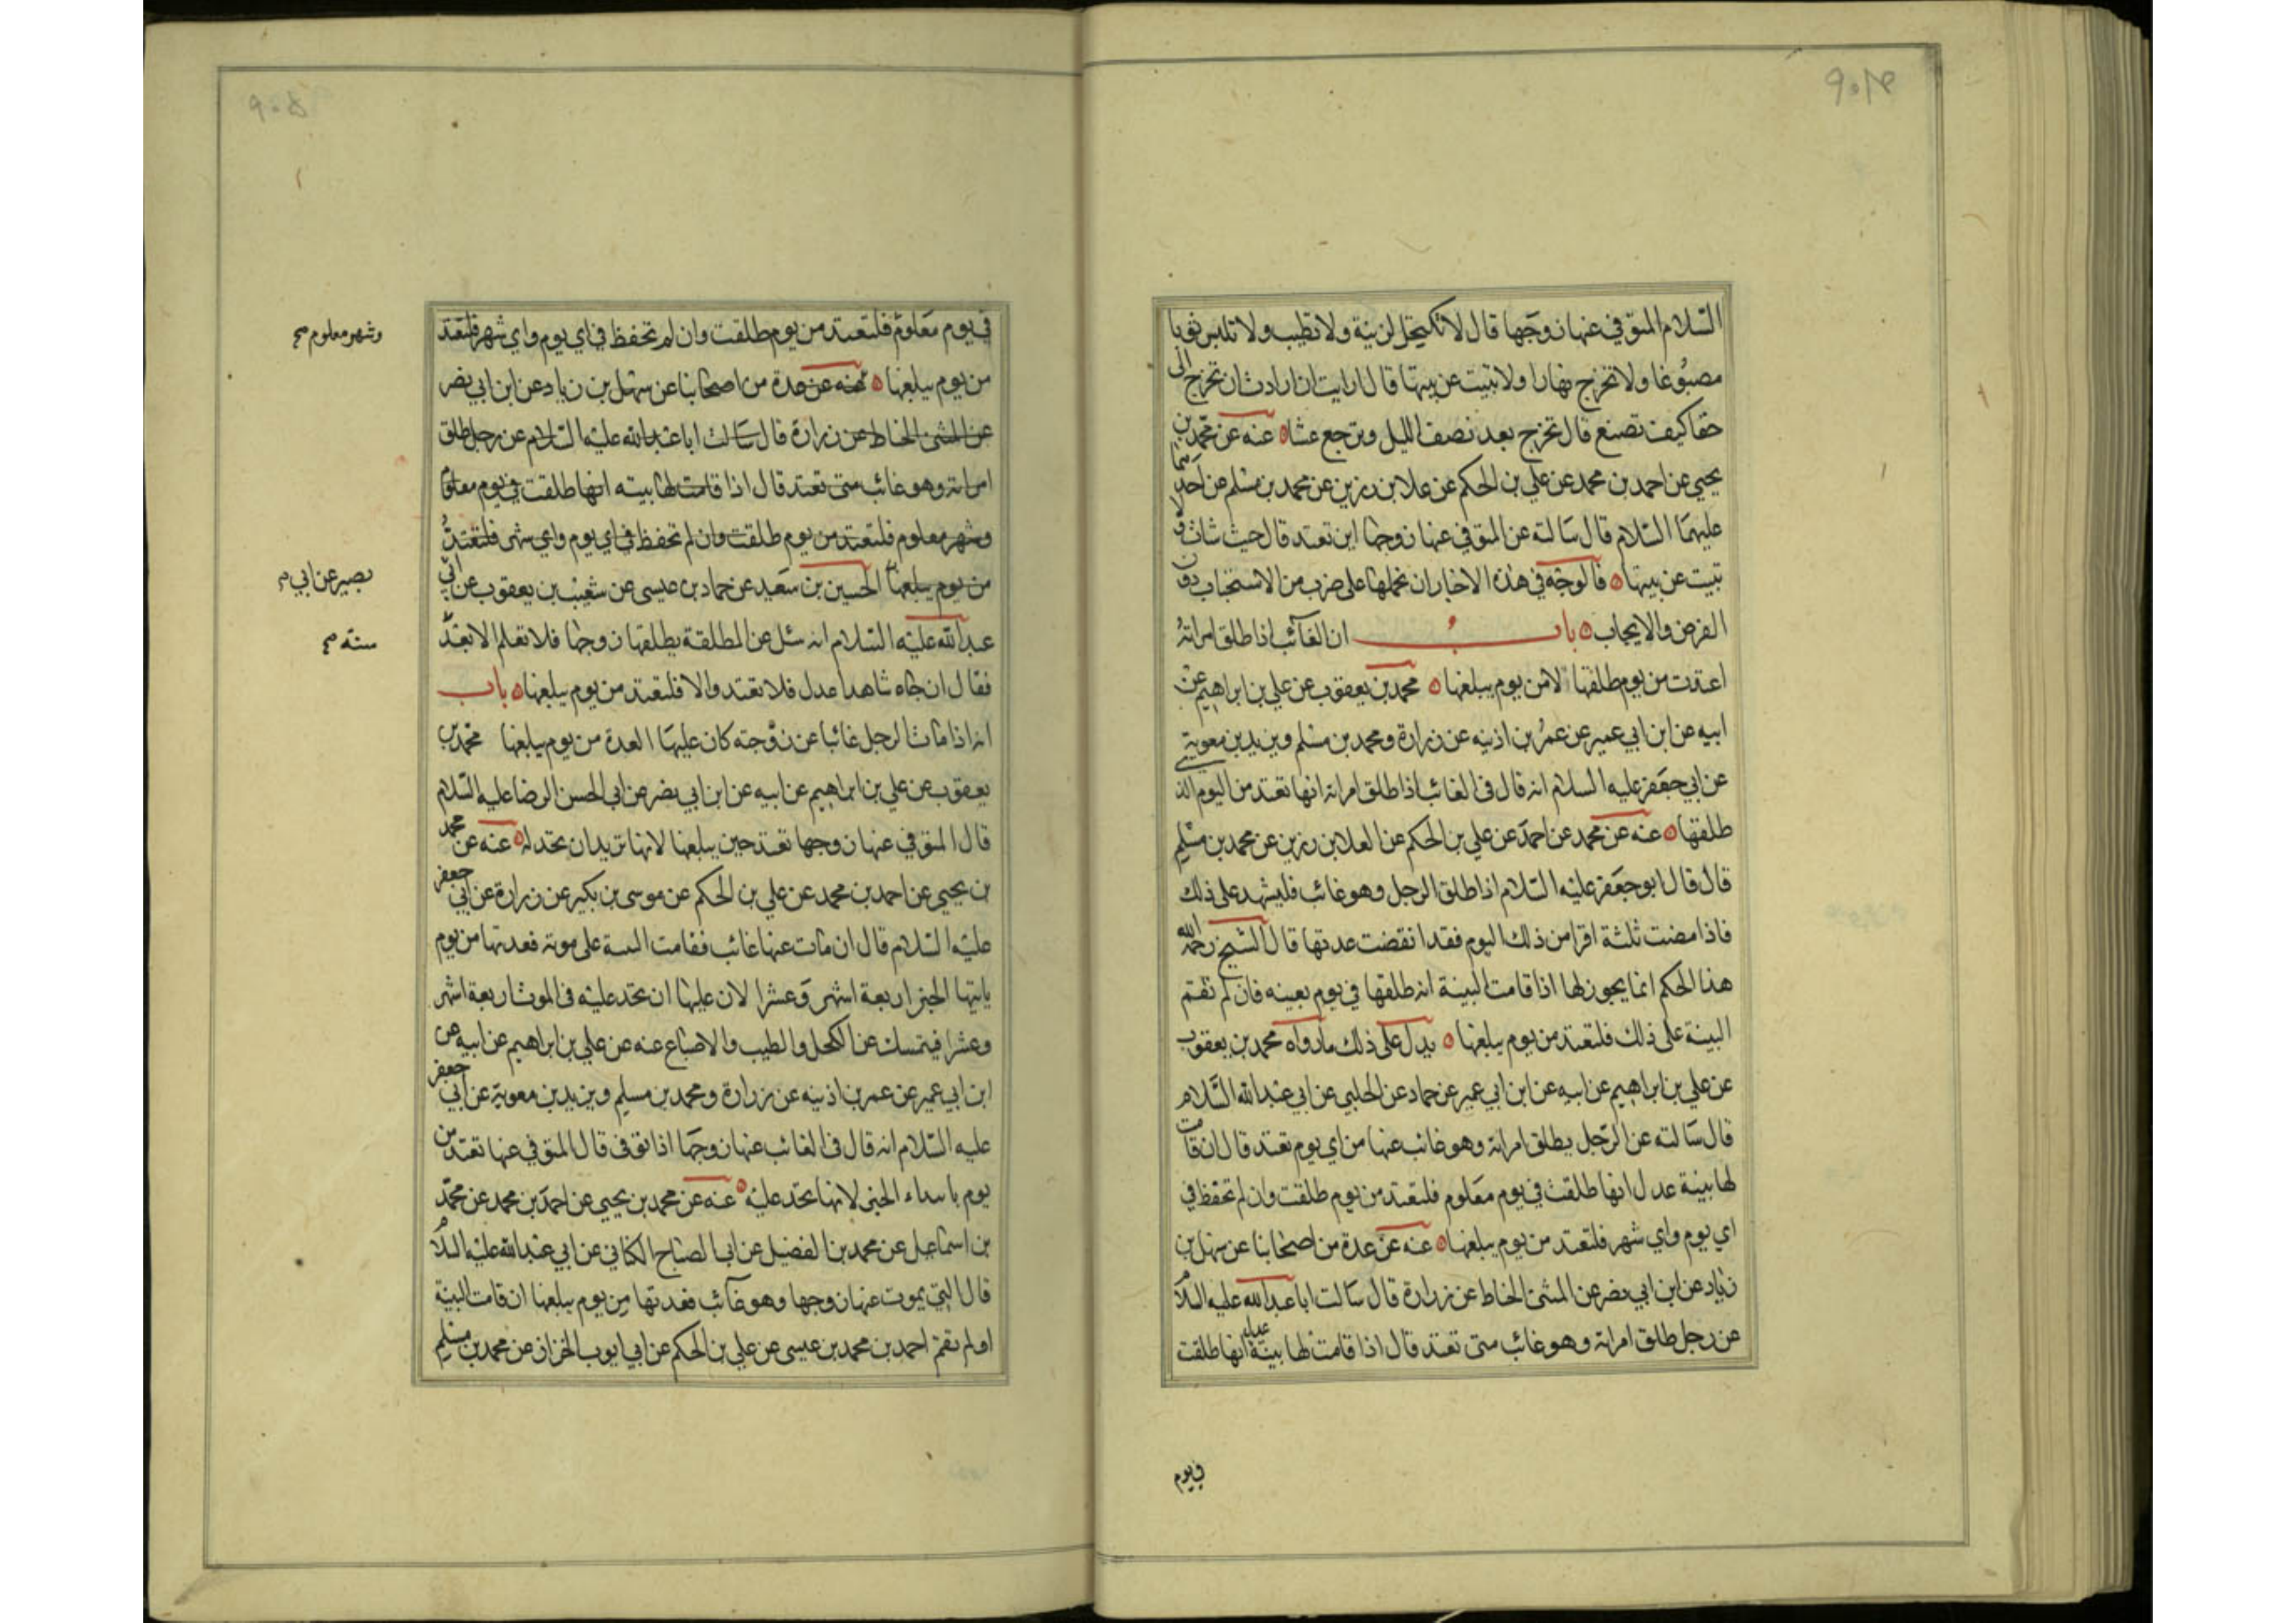 ۹۰۴
السلام المتوفي عنها زوجها قال لا تكتحل لزينة ولا تطيب ولا تلبس ثوبا
مصبوغا ولا تخرج نهارا ولا تبيت عن بيتها قال ارايت ان ارادت ان تخرج الى
حق كيف تصنع قال تخرج بعد نصف الليل وترجع عشاء عنه عن محمد بن
يحيى عن احمد بن محمد عن علي بن الحكم عن علا بن رزين عن محمد بن مسلم عن احدهما
عليهما السلام قال سالته عن المتوفي عنها زوجها اين تعتد قال حيث شات ولا
تبيت عن بيتها فالوجه في هذه الاخبار ان نحملها على ضرب من الاستحباب دون
الفرض والايجاب باب ان الغائب اذا طلق امراته
اعتدت من يوم طلقها لا من يوم يبلغها محمد بن يعقوب عن علي بن ابراهيم عن
ابيه عن ابن ابي عمير عن عمر بن اذينه عن زرارة ومحمد بن مسلم وبريد بن معوية
عن ابي جعفر عليه السلام انه قال في الغائب اذا طلق امراته انها تعتد من اليوم الذي
طلقها عنه عن محمد عن احمد عن علي بن الحكم عن العلا بن رزين عن محمد بن مسلم
قال قال ابو جعفر عليه السلام اذا طلق الرجل وهو غائب فليشهد على ذلك
فاذا مضت ثلثة اقرا من ذلك اليوم فقد انقضت عدتها قال الشيخ رحمه الله
هذا الحكم انما يجوز لها اذا قامت البينة انه طلقها في يوم بعينه فان لم تقم
البينة على ذلك فلتعتد من يوم يبلغها يدل على ذلك ما رواه محمد بن يعقوب
عن علي بن ابراهيم عن ابيه عن ابن ابي عمير عن حماد عن الحلبي عن ابي عبد الله السلام
قال سالته عن الرجل يطلق امراته وهو غائب عنها من اي يوم تعتد قال ان قامت
لها بينة عدل انها طلقت في يوم معلوم فلتعتد من يوم طلقت وان لم تحفظ في
اي يوم واي شهر فلتعتد من يوم يبلغها عنه عن عدة من اصحابنا عن سهل بن
زياد عن ابن ابي نصر عن المثنى الحناط عن زرارة قال سالت ابا عبد الله عليه السلام
عن رجل طلق امراته وهو غائب متى تعتد قال اذا قامت لها بينة انها طلقت
في يوم
۹۰۵
في يوم معلوم فلتعتد من يوم طلقت وان لم تحفظ في اي يوم واي شهر فلتعتد
وشهر معلوم صح
من يوم يبلغها عنه عن عدة من اصحابنا عن سهل بن زياد عن ابن ابي نصر
عن المثنى الحناط عن زرارة قال سالت ابا عبد الله عليه السلام عن رجل طلق
امراته وهو غائب متى تعتد قال اذا قامت لها بينه انها طلقت في يوم معلوم
وشهر معلوم فلتعتد من يوم طلقت وان لم تحفظ في اي يوم واي شهر فلتعتد
من يوم يبلغها الحسين بن سعيد عن حماد بن عيسى عن شعيب بن يعقوب عن ابي
بصير عن ابي
عبد الله عليه السلام انه سئل عن المطلقة يطلقها زوجها فلا تعلم الا بعد
سنة صح
فقال ان جاء شاهدا عدل فلا تعتد والا فلتعتد من يوم يبلغها باب
انه اذا مات الرجل غائبا عن زوجته كان عليها العدة من يوم يبلغها محمد بن
يعقوب عن علي بن ابراهيم عن ابيه عن ابن ابي نصر عن ابي الحسن الرضا عليه السلام
قال المتوفي عنها زوجها تعتد حين يبلغها لانها تريد ان تحد له عنه عن محمد
بن يحيى عن احمد بن محمد عن علي بن الحكم عن موسى بن بكير عن زرارة عن ابي جعفر
عليه السلام قال ان مات عنها غائب فقامت البينة على موته فعدتها من يوم
ياتيها الخبر اربعة اشهر وعشرا لان عليها ان تحد عليه في الموت اربعة اشهر
وعشرا فتمسك عن الكحل والطيب والاصباغ عنه عن علي بن ابراهيم عن ابيه عن
ابن ابي عمير عن عمر بن اذينه عن زرارة ومحمد بن مسلم وبريد بن معوية عن ابي جعفر
عليه السلام انه قال في الغائب عنها زوجها اذا توفى قال المتوفي عنها تعتد من
يوم ياتيها الخبر لانها تحد عليه عنه عن محمد بن يحيى عن احمد بن محمد عن محمد
بن اسماعيل عن محمد بن الفضيل عن ابي الصباح الكناني عن ابي عبد الله عليه السلام
قال التي يموت عنها زوجها وهو غائب فعدتها من يوم يبلغها ان قامت البينة
او لم تقم احمد بن محمد بن عيسى عن علي بن الحكم عن ابي ايوب الخزاز عن محمد بن مسلم